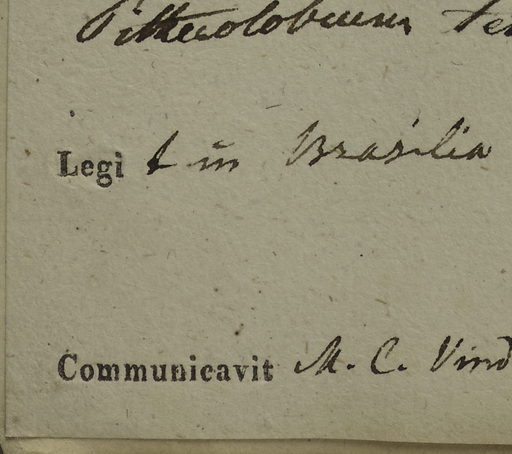 Pithecolobium te
Legi t in Brasilia
Communicavit M. C. Vind